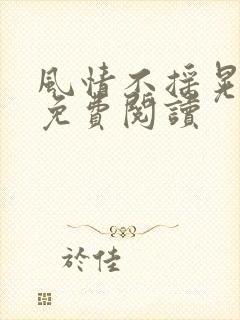 風情不搖晃
免費閱讀
於佳